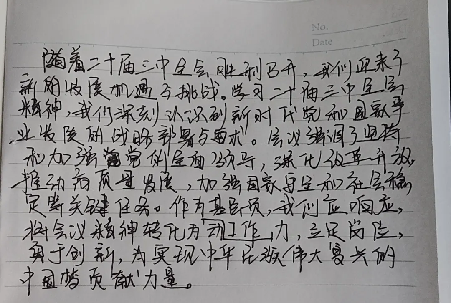 No.
Date
随着二十届三中全会胜利召开，我们迎来了
新的发展机遇与挑战。学习二十届三中全会
精神，我们深刻认识到新时代党和国家事
业发展的战略部署与要求。会议强调了坚持
和加强党的全面领导，深化改革开放，
推动高质量发展，加强国家安全和社会稳
定等关键任务。作为基层员，我们应响应，
将会议精神转化为工作力，立足岗位，
勇于创新，为实现中华民族伟大复兴的
中国梦贡献力量。